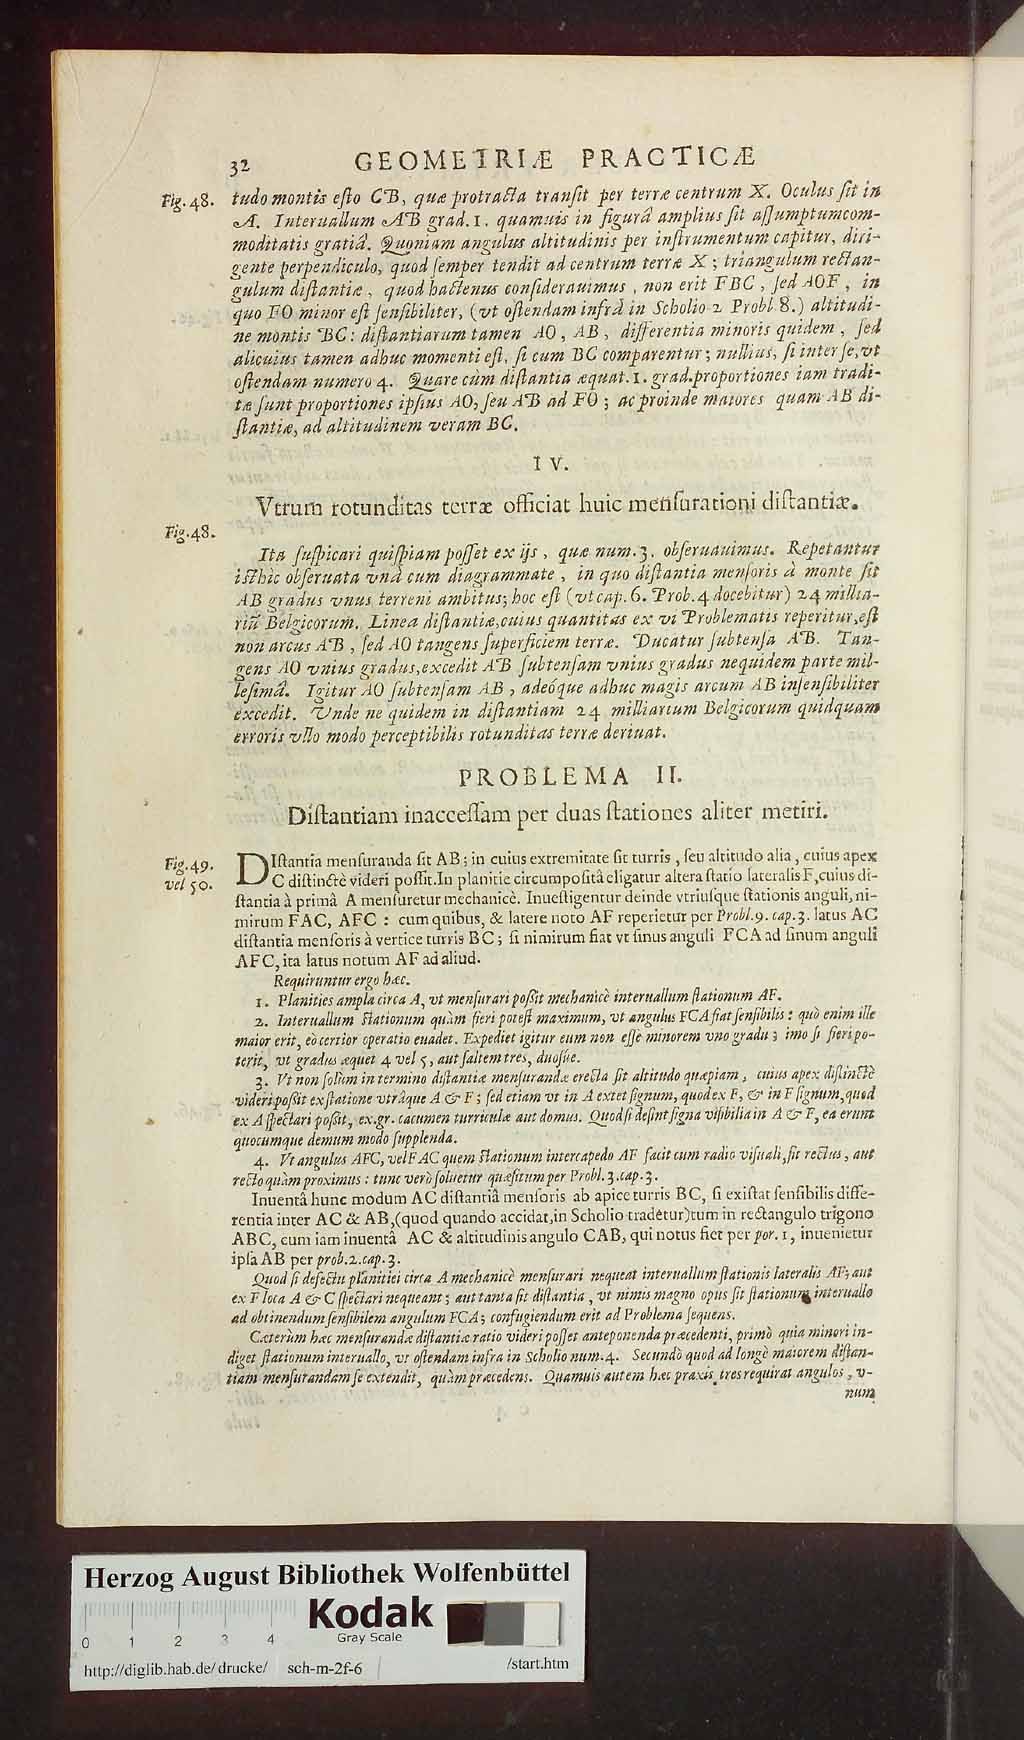 32 GEOMETRIÆ PRACTICÆ
Fig. 48. tudo montis eſto CB, quæ protracta tranſit per terræ centrum X. Oculus ſit in
A. Interuallum AB grad. 1. quamuis in figurâ amplius ſit aſſumptum com-
moditatis gratiâ. Quoniam angulus altitudinis per inſtrumentum capitur, diri-
gente perpendiculo, quod ſemper tendit ad centrum terræ X; triangulum rectan-
gulum diſtantiæ, quod hactenus conſiderauimus, non erit FBC, ſed AOF, in
quo FO minor eſt ſenſibiliter, (vt oſtendam infrà in Scholio 2 Probl. 8.) altitudi-
ne montis BC: diſtantiarum tamen AO, AB, differentia minoris quidem, ſed
alicuius tamen adhuc momenti eſt, ſi cum BC comparentur; nullius, ſi inter ſe, vt
oſtendam numero 4. Quare cùm diſtantia æquat. 1. grad. proportiones iam tradi-
tæ ſunt proportiones ipſius AO, ſeu AB ad FO; ac proinde maiores quam AB di-
ſtantiæ, ad altitudinem veram BC.
IV.
Vtrum rotunditas terræ officiat huic menſurationi diſtantiæ.
Fig. 48.
Ita ſuſpicari quiſpiam poſſet ex ijs, quæ num. 3. obſeruauimus. Repetantur
iſthìc obſeruata vnà cum diagrammate, in quo diſtantia menſoris à monte ſit
AB gradus vnus terreni ambitus; hoc eſt (vt cap. 6. Prob. 4 docebitur) 24 millia-
riũ Belgicorum. Linea diſtantiæ, cuius quantitas ex vi Problematis reperitur, eſt
non arcus AB, ſed AO tangens ſuperficiem terræ. Ducatur ſubtenſa AB. Tan-
gens AO vnius gradus, excedit AB ſubtenſam vnius gradus nequidem parte mil-
leſimâ. Igitur AO ſubtenſam AB, adeóque adhuc magis arcum AB inſenſibiliter
excedit. Vnde ne quidem in diſtantiam 24 milliarium Belgicorum quidquam
erroris vllo modo perceptibilis rotunditas terræ deriuat.
PROBLEMA II.
Diſtantiam inacceſſam per duas ſtationes aliter metiri.
Fig. 49. DIſtantia menſuranda ſit AB; in cuius extremitate ſit turris, ſeu altitudo alia, cuius apex
vel 50. C diſtinctè videri poſſit. In planitie circumpoſitâ eligatur altera ſtatio lateralis F, cuius di-
ſtantia à primâ A menſuretur mechanicè. Inueſtigentur deinde vtriuſque ſtationis anguli, ni-
mirum FAC, AFC: cum quibus, & latere noto AF reperietur per Probl. 9. cap. 3. latus AC
diſtantia menſoris à vertice turris BC; ſi nimirum fiat vt ſinus anguli FCA ad ſinum anguli
AFC, ita latus notum AF ad aliud.
Requiruntur ergo hæc.
1. Planities ampla circa A, vt menſurari poßit mechanicè interuallum ſtationum AF.
2. Interuallum ſtationum quàm fieri poteſt maximum, vt angulus FCA fiat ſenſibilis: quò enim ille
maior erit, eò certior operatio euadet. Expediet igitur eum non eſſe minorem vno gradu; imo ſi fieri po-
terit, vt gradus æquet 4 vel 5, aut ſaltem tres, duoſue.
3. Vt non ſolùm in termino diſtantiæ menſurandæ erecta ſit altitudo quæpiam, cuius apex diſtinctè
videri poßit ex ſtatione vtrâque A & F; ſed etiam vt in A extet ſignum, quod ex F, & in F ſignum, quod
ex A ſpectari poßit, ex. gr. cacumen turriculæ aut domus. Quod ſi deſint ſigna viſibilia in A & F, ea erunt
quocumque demum modo ſupplenda.
4. Vt angulus AFC, vel FAC quem ſtationum intercapedo AF facit cum radio viſuali, ſit rectus, aut
recto quàm proximus: tunc verò ſoluetur quæſitum per Probl. 3. cap. 3.
Inuentâ hunc modum AC diſtantiâ menſoris ab apice turris BC, ſi exiſtat ſenſibilis diffe-
rentia inter AC & AB, (quod quando accidat, in Scholio tradētur) tum in rectangulo trigono
ABC, cum iam inuentâ AC & altitudinis angulo CAB, qui notus fiet per por. 1, inuenietur
ipſa AB per prob. 2. cap. 3.
Quod ſi defectu planitiei circa A mechanicè menſurari nequeat interuallum ſtationis lateralis AF; aut
ex F loca A & C ſpectari nequeant; aut tanta ſit diſtantia, vt nimis magno opus ſit ſtationum interuallo
ad obtinendum ſenſibilem angulum FCA; confugiendum erit ad Problema ſequens.
Cæterùm hæc menſurandæ diſtantiæ ratio videri poſſet anteponenda præcedenti, primò quia minori in-
diget ſtationum interuallo, vt oſtendam infra in Scholio num. 4. Secundò quod ad longè maiorem diſtan-
tiam menſurandam ſe extendit, quàm præcedens. Quamuis autem hæc praxis tres requirat angulos, v-
num
Herzog August Bibliothek Wolfenbüttel
Kodak
Gray Scale
0 1 2 3 4
http://diglib.hab.de/drucke/ sch-m-2f-6 /start.htm